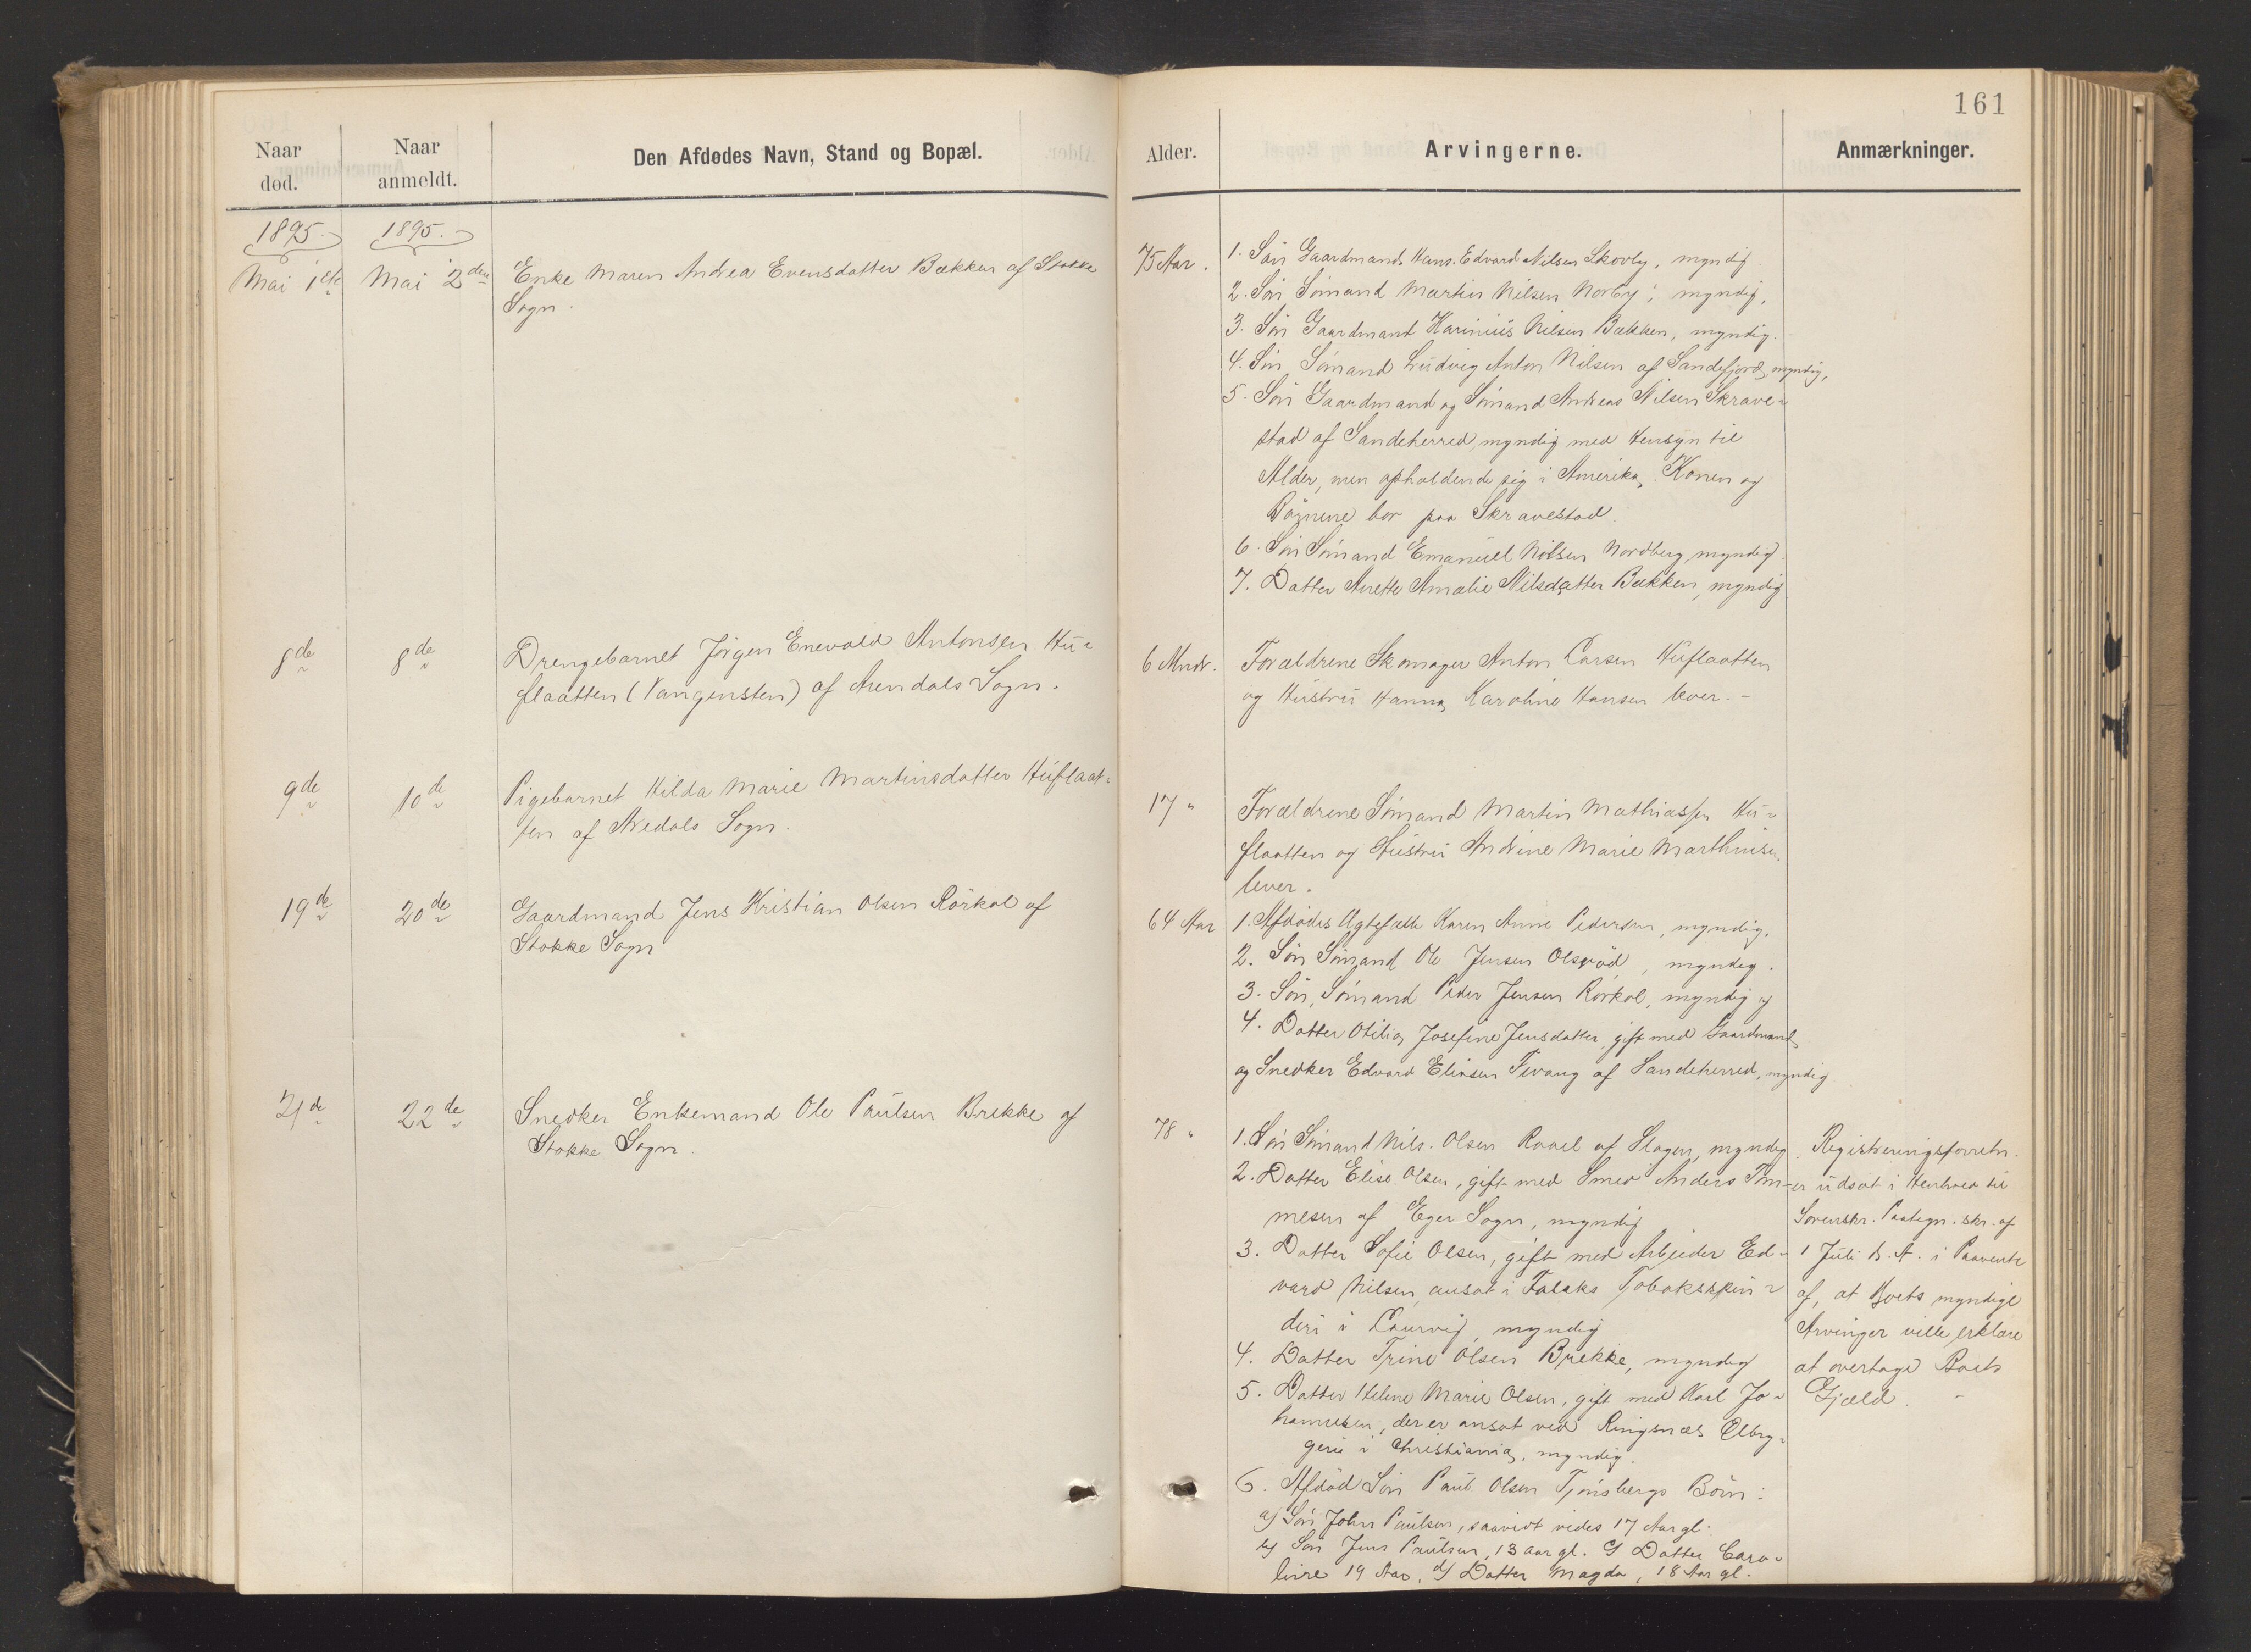 161
Naar
død.
Naar
anmeldt.
Den Afdødes Navn, Stand og Bopæl.
Alder.
Arvingerne.
Anmærkninger.
1895.
1895.
Mai 1ste
Mai 2den
Enke Maren Andrea Evensdatter Bækken af Stokke
Sogn.
75 Aar.
1. Søn Gaardmand Hans Edvard Nilsen Skovly, myndig
2. Søn Sømand Martin Nilsen Norby, myndig,
3. Søn Gaardmand Karinius Nilsen Bækken, myndig.
4. Søn Sømand Ludvig Anton Nilsen af Sandefjord, myndig,
5. Søn Gaardmand og Sømand Andreas Nilsen Skrave-
stad af Sandeherred, myndig med Hensyn til
Alder, men opholdende sig i Amerika, Konen og
Børnene bor paa Skravestad.
6. Søn Sømand Emanuel Nilsen Nordberg, myndig.
7. Datter Anette Amalie Nilsdatter Bækken, myndig
8de
8de
Drengebarnet Jørgen Enevold Antonsen Hu-
flaatten (Vangensten) af Arendals Sogn.
6 Mndr.
Forældrene Skomager Anton Larsen Huflaatten
og Hustru Hanna Karoline Hansen lever. -
9de
10de
Pigebarnet Hilda Marie Martinsdatter Huflaat-
ten af Aredals Sogn.
17 "
Forældrene Sømand Martin Mathiassen Hu-
flaatten og Hustru Andrine Marie Marthinsen
lever.
19de
20de
Gaardmand Jens Kristian Olsen Rørkol af
Stokke Sogn
64 Aar
1. Afdødes Ægtefælle Karen Anne Pedersen, myndig.
2. Søn Sømand Ole Jensen Olsrød, myndig.
3. Søn, Sømand Peder Jensen Rørkol, myndig og
4. Datter Otilia Josefine Jensdatter, gift med Gaardmand
og Snedker Edvard Eliasen Fevang af Sandeherred, myndig
21de
22de
Snedker Enkemand Ole Paulsen Brekke af
Stokke Sogn.
78 "
1. Søn Sømand Nils Olsen Raael af Slagen, myndig.
2. Datter Elise Olsen, gift med Smed Anders Tom-
mesen af Eger Sogn, myndig
3. Datter Sofie Olsen, gift med Arbeider Ed-
vard Nilsen, ansat i Falaks Tobaksspin-
deri i Laurvig, myndig
4. Datter Trine Olsen Brekke, myndig
5. Datter Helene Marie Olsen, gift med Karl Jo-
hannesen, der er ansat ved Ringnæs Ølbryg-
geri i Christiania, myndig.
6. Afdød Søn Paul Olsen Tjønsbergs Børn:
a) Søn John Paulsen, saavidt vides 17 Aar gl.
b) Søn Jens Paulsen, 13 aar gl. c) Datter Caro-
line 19 Aar, d) Datter Magda, 18 Aar gl.
Registreringsforretn.
er udsat i Henhold til
Sorenskr. Paategn. skr. af
1 Juli d. A. i Paavente
af, at Boets myndige
Arvinger ville erklære
at overtage Boets
Gjæld. -